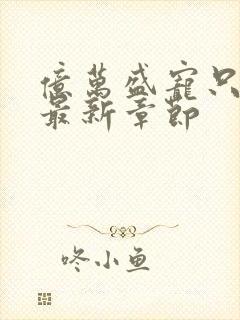 億萬盛寵只
最新章節
咚小鱼